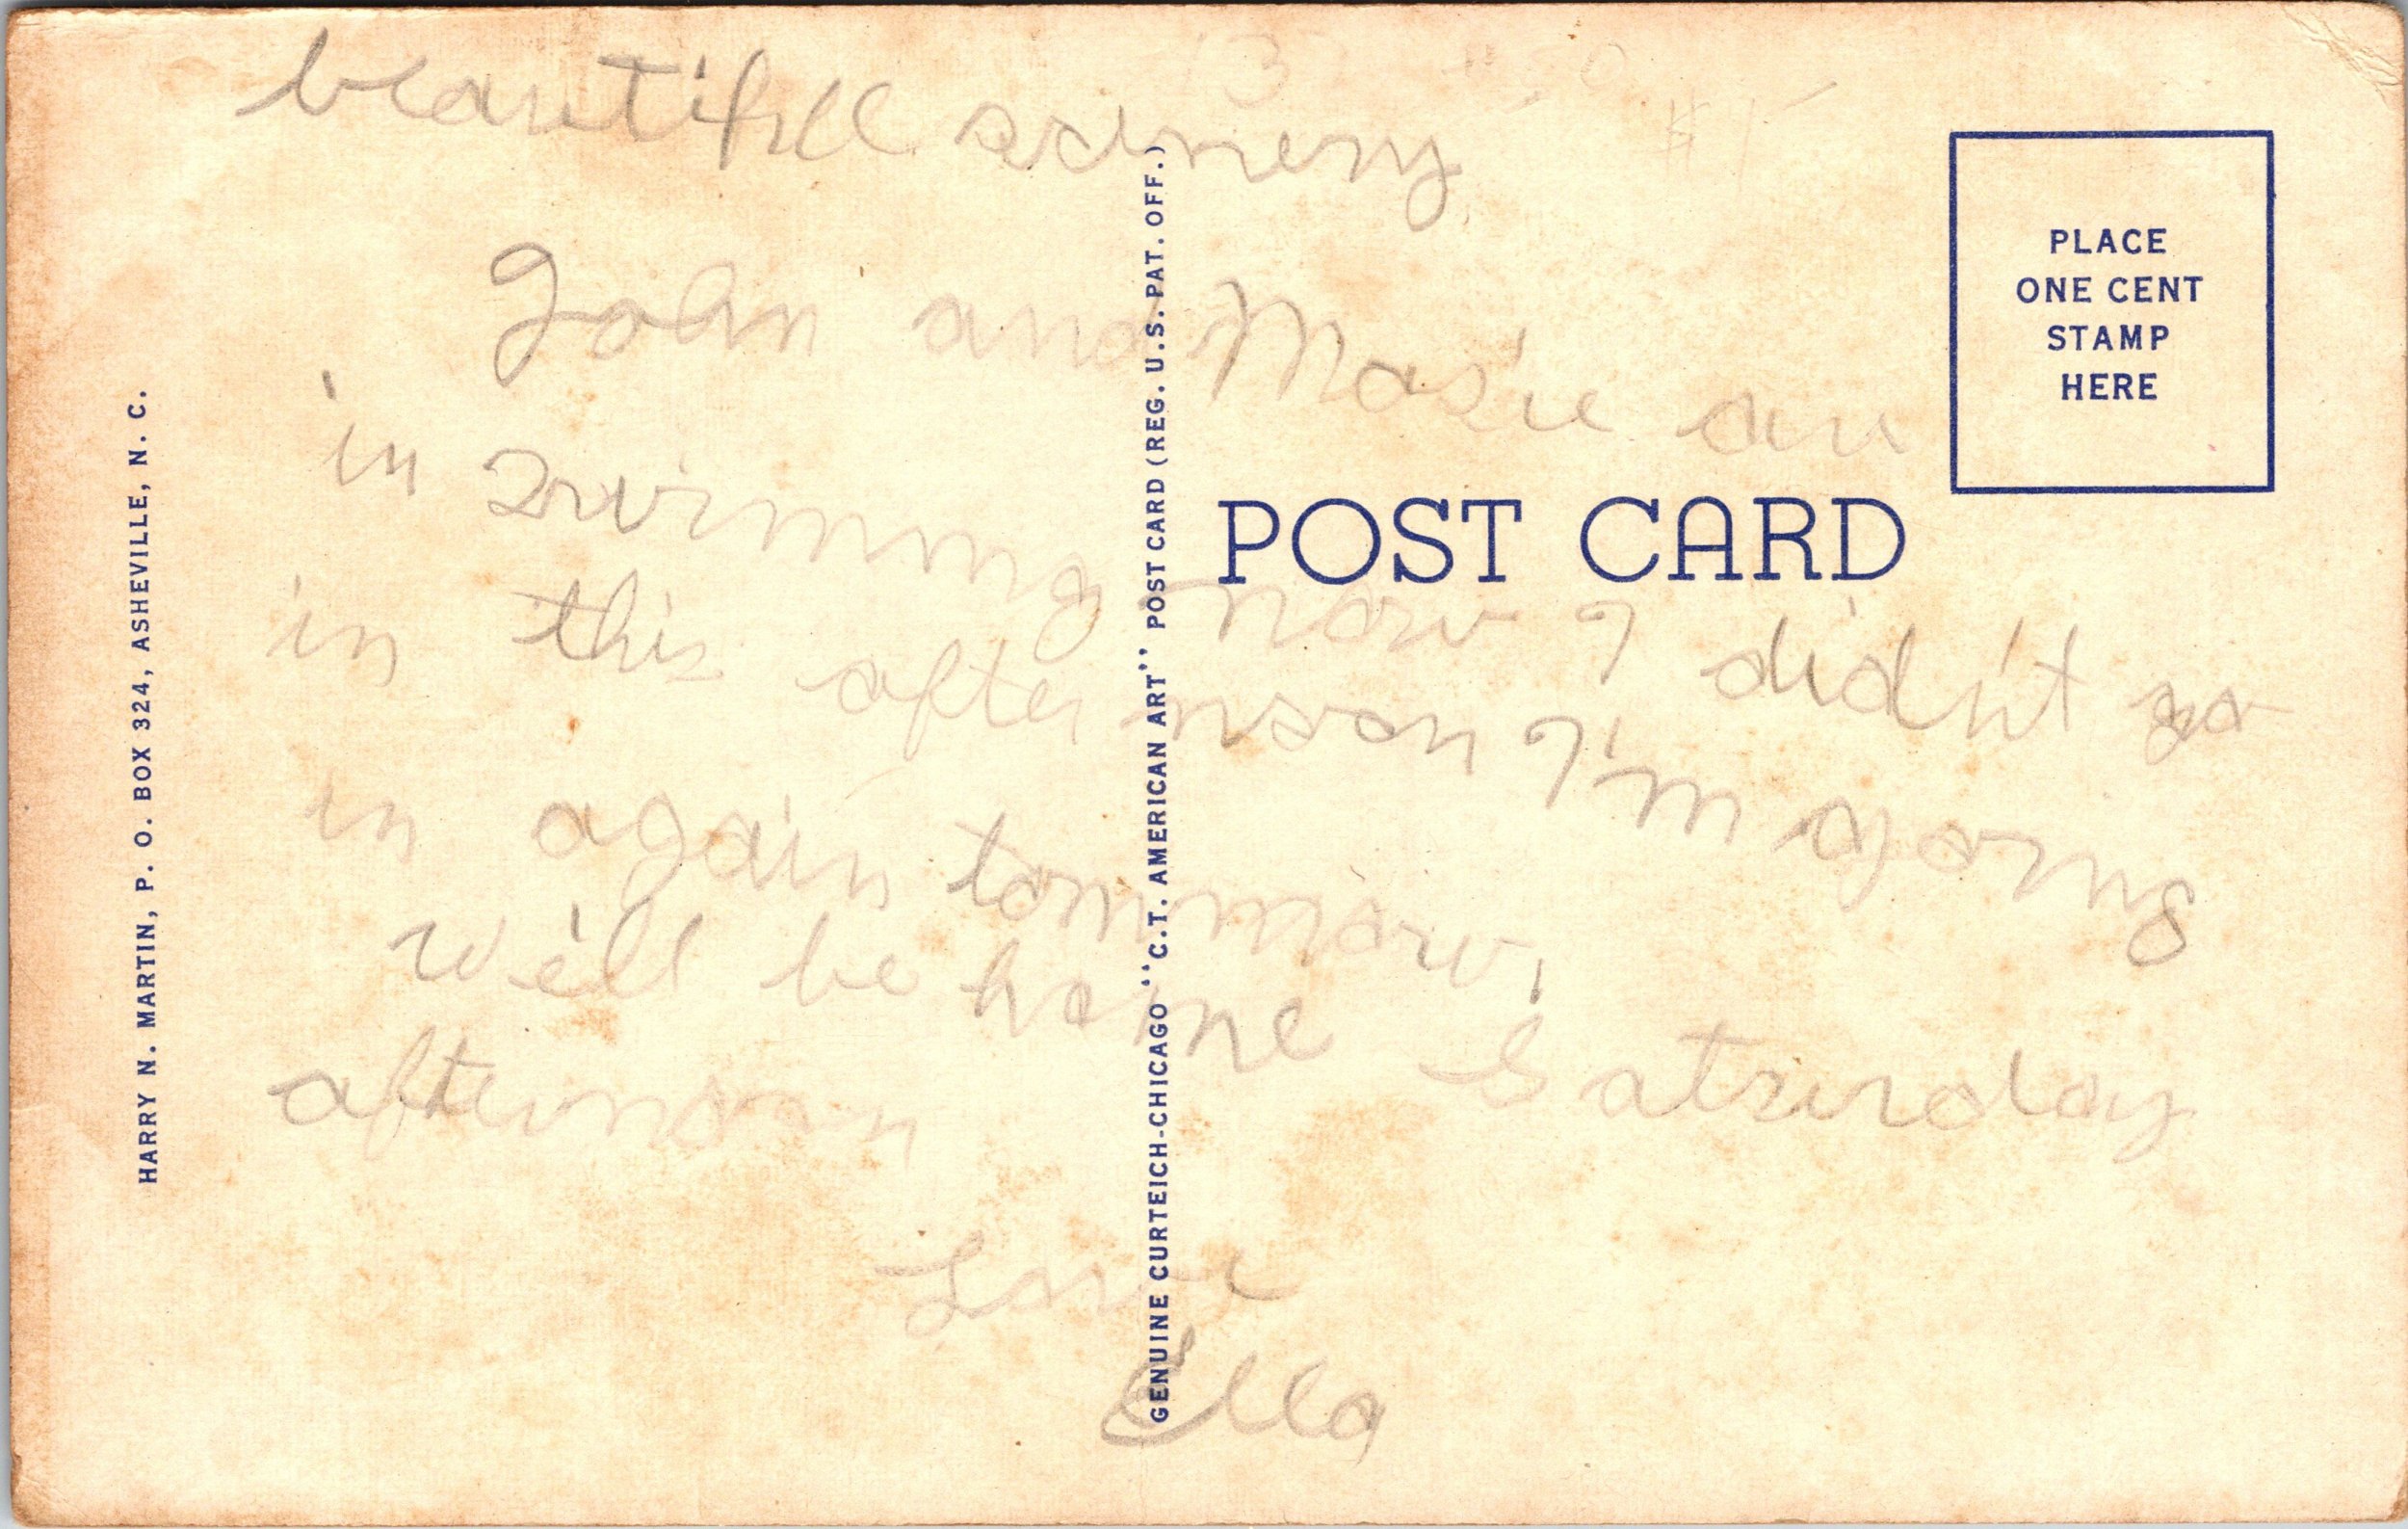 beautifull scenery.
John and Marie are
in swimming now I didn't go
in this afternoon I'm going
in again tommrow.
We'll be home Saturday
afternoon
Love
Ella
POST CARD
PLACE
ONE CENT
STAMP
HERE
HARRY N. MARTIN, P. O. BOX 324, ASHEVILLE, N. C.
GENUINE CURTEICH-CHICAGO "C.T. AMERICAN ART" POST CARD (REG. U.S. PAT. OFF.)
$1